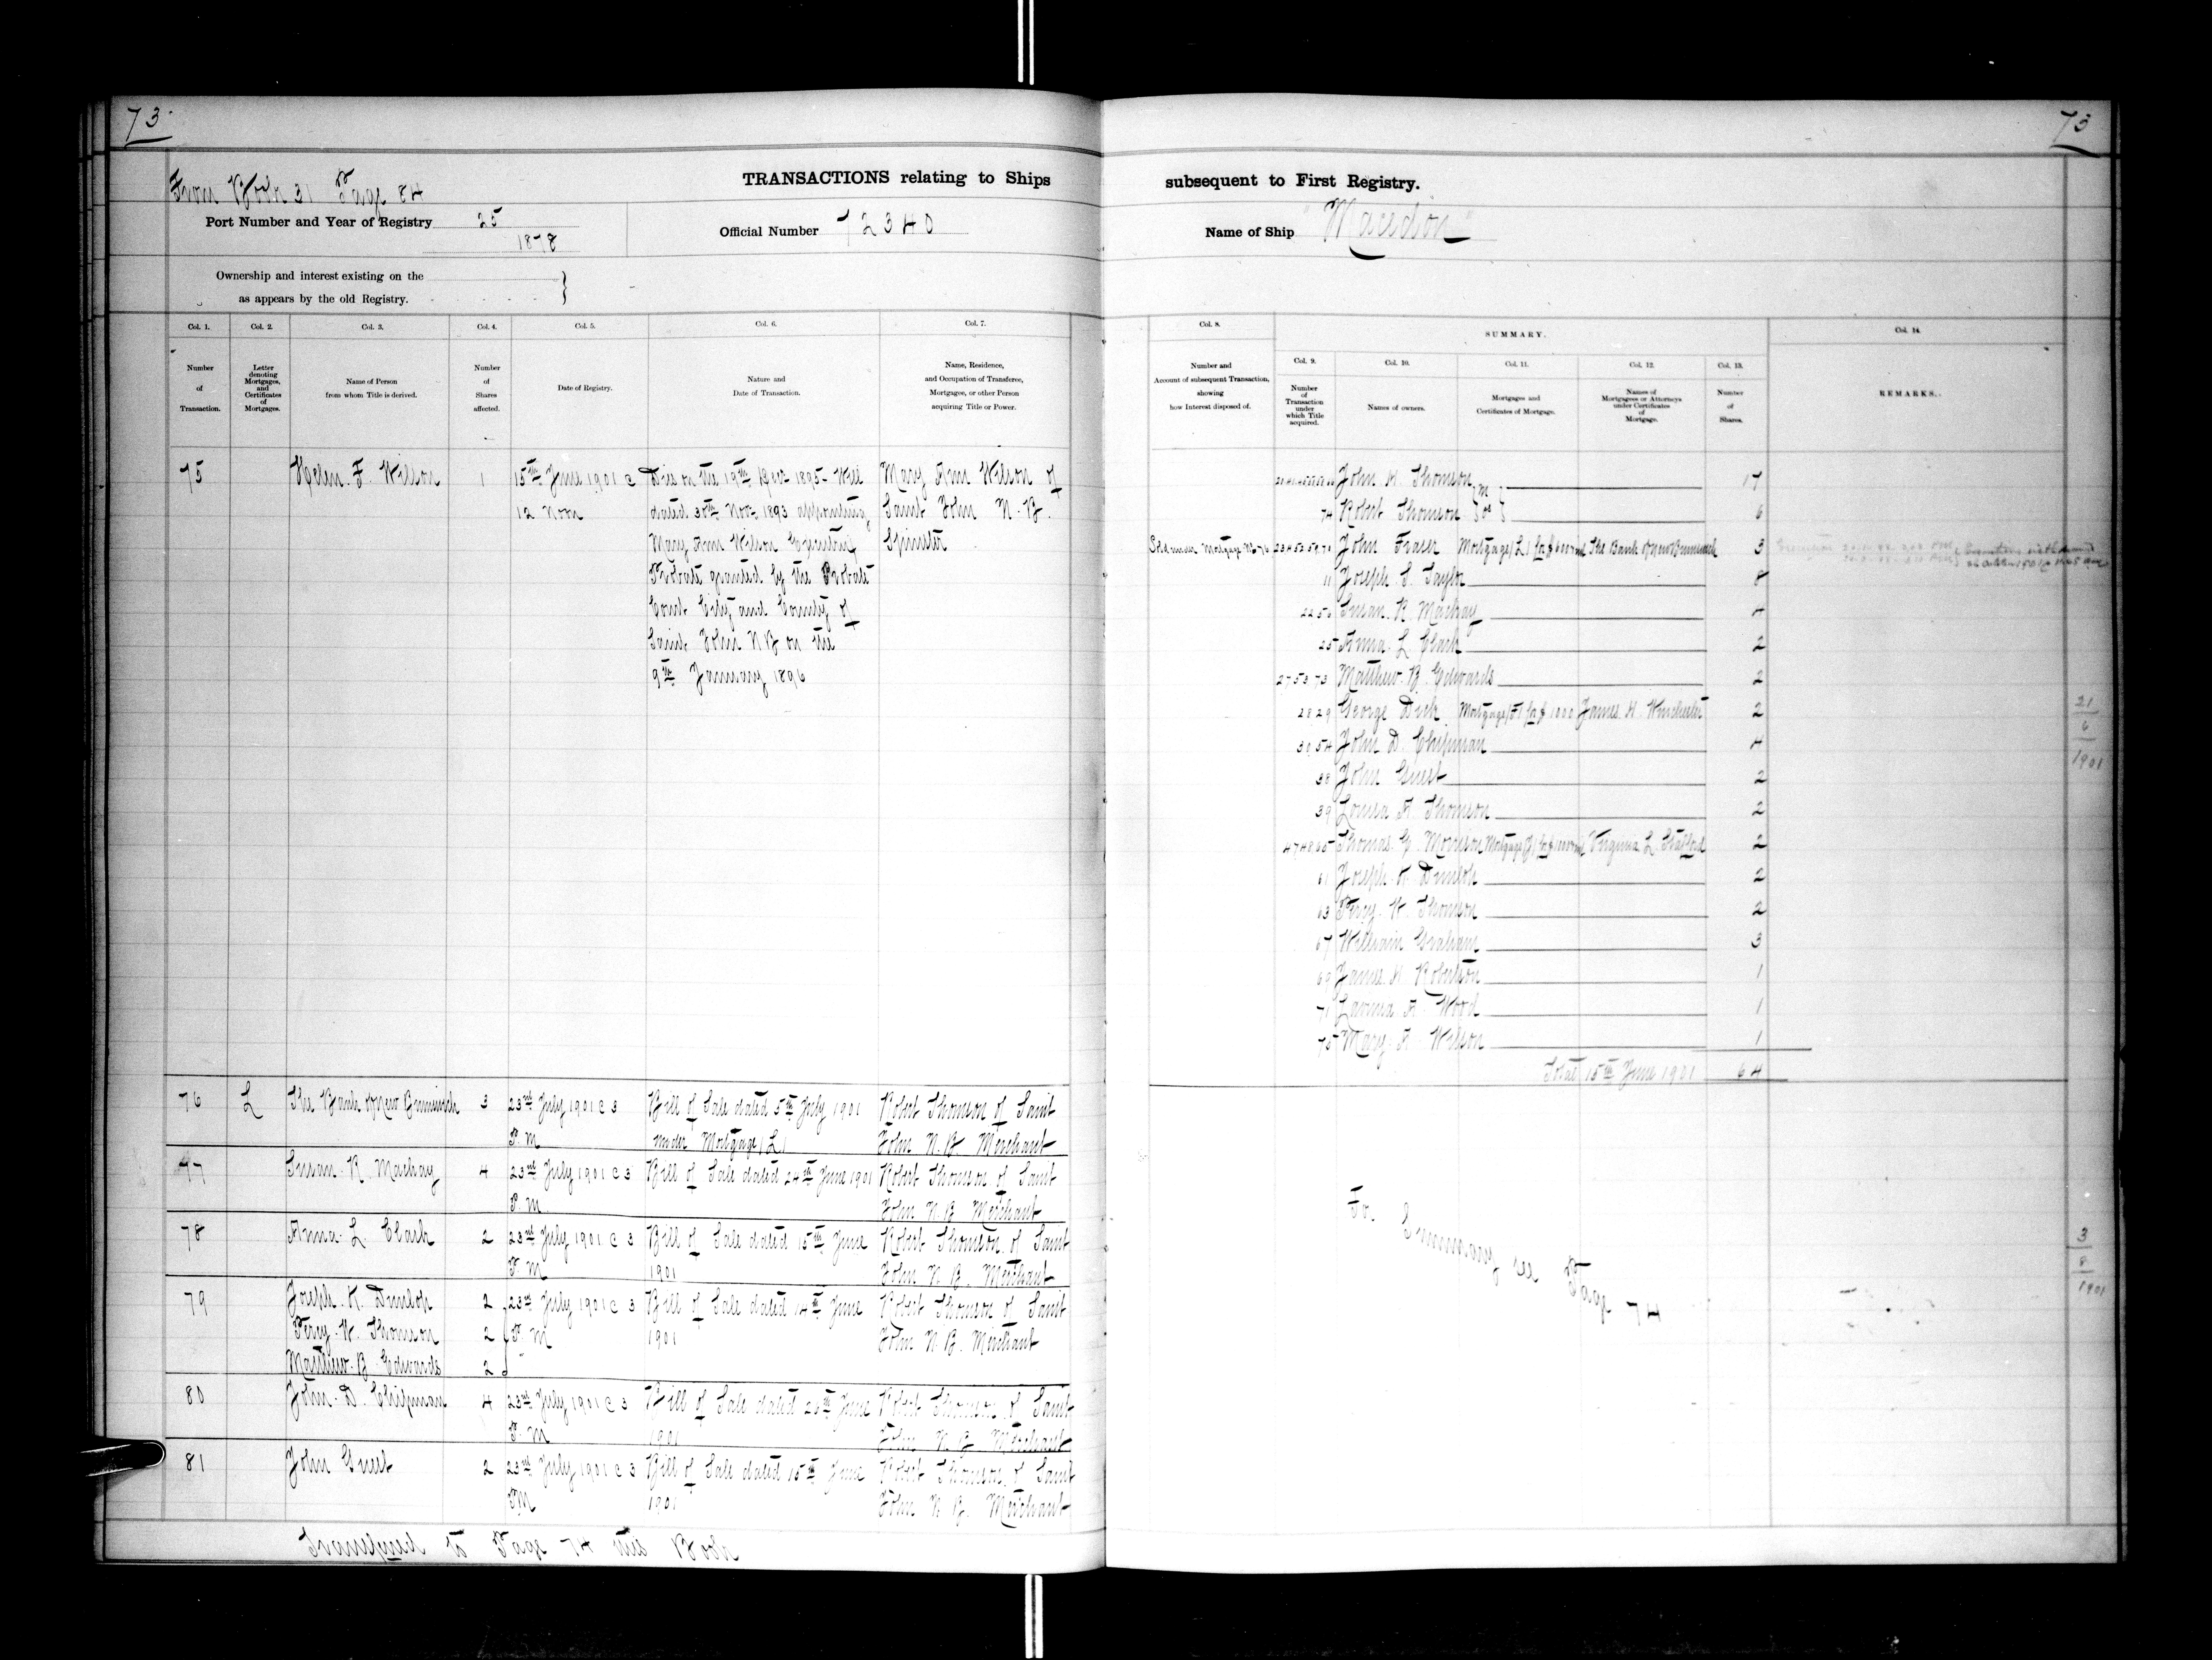 73
73
From Book 31 Page 84
TRANSACTIONS relating to Ships
subsequent to First Registry.
Port Number and Year of Registry 25
1878
Official Number 72340
Name of Ship "Macedon"
Ownership and interest existing on the
as appears by the old Registry.
Col. 1.
Number
of
Transaction.
Col. 2.
Letter
denoting
Mortgages,
and
Certificates
of
Mortgages.
Col. 3.
Name of Person
from whom Title is derived.
Col. 4.
Number
of
Shares
affected.
Col. 5.
Date of Registry.
Col. 6.
Nature and
Date of Transaction.
Col. 7.
Name, Residence,
and Occupation of Transferee,
Mortgagee, or other Person
acquiring Title or Power.
75 Helen F. Wilson 1 15th June 1901 @ Died on the 19th Decr 1895 Will Mary Ann Wilson of
12 Noon dated 30th Novr 1893 appointing Saint John N.B.
Mary Ann Wilson Executrix Spinster
Probate granted by the Probate
Court City and County of
Saint John N B on the
9th January 1896
76 L The Bank of New Brunswick 3 23rd July 1901 @ 3 Bill of Sale dated 5th July 1901 Robert Thomson of Saint
P.M under Mortgage (L) John N.B. Merchant
77 Susan R. Mackay 4 23rd July 1901 @ 3 Bill of Sale dated 24th June 1901 Robert Thomson of Saint
P.M John N.B. Merchant
78 Anna L. Clark 2 23rd July 1901 @ 3 Bill of Sale dated 15th June Robert Thomson of Saint
P.M 1901 John N.B. Merchant
79 Joseph K. Dunlop 2 23rd July 1901 @ 3 Bill of Sale dated 14th June Robert Thomson of Saint
Percy W. Thomson 2 P.M 1901 John N.B. Merchant
Matthew B. Edwards 2
80 John D. Chipman 4 23rd July 1901 @ 3 Bill of Sale dated 26th June Robert Thomson of Saint
P.M 1901 John N.B. Merchant
81 John Guest 2 23rd July 1901 @ 3 Bill of Sale dated 15th June Robert Thomson of Saint
P.M 1901 John N.B. Merchant
Transferred to Page 74 this Book
Col. 8.
Number and
Account of subsequent Transaction,
showing
how Interest disposed of.
SUMMARY.
Col. 9.
Number
of
Transaction
under
which Title
acquired.
Col. 10.
Names of owners.
Col. 11.
Mortgages and
Certificates of Mortgage.
Col. 12.
Names of
Mortgagees or Attorneys
under Certificates
of
Mortgage.
Col. 13.
Number
of
Shares.
Col. 14.
REMARKS.
John H. Thomson 17
74 Robert Thomson 6
Sold under Mortgage John Fraser Mortgage (L) for The Bank of New Brunswick 3
11 Joseph S. Taylor 8
22 56 Susan R. Mackay 4
25 Anna L Clark 2
27 53 73 Matthew B. Edwards 2
28 29 George Dick Mortgage (F) for $1000 James H. Winchester 2
30 54 John D. Chipman 4
38 John Guest 2
39 Louisa A Thomson 2
Thomas G. Morrison Mortgage (J) for Virginia L. Stafford 2
61 Joseph K Dunlop 2
63 Percy W. Thomson 2
67 William Graham 3
69 James H. Robertson 1
71 A Wood 1
75 Mary A Wilson 1
Total 15th June 1901 64
21
6
1901
For Summary see Page 74
3
8
1901